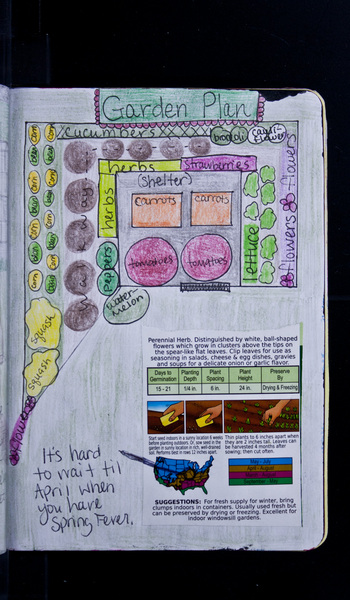 Garden Plan
cucumbers
broccoli
cauli-
flower
corn
corn
herbs
strawberries
(shelter)
carrots
carrots
herbs
flowers
flowers
lettuce
peppers
tomatoes
tomatoes
water-
melon
squash
squash
flowers
It's hard
to wait til
April when
you have
Spring Fever.
Perennial Herb. Distinguished by white, ball-shaped
flowers which grow in clusters above the tips on
the spear-like flat leaves. Clip leaves for use as
seasoning in salads, cheese & egg dishes, gravies
and soups for a delicate onion or garlic flavor.
Days to Germination
Planting Depth
Plant Spacing
Plant Height
Preserve By
15 - 21
1/4 in.
8 in.
24 in.
Drying & Freezing
Start seed indoors in a sunny location 8 weeks
before planting outdoors. Or, sow seed in the
garden in sunny location in rich, well-drained
soil. Performs best in rows 12 inches apart.
Thin plants to 6 inches apart when
they are 2 inches tall. Leaves can
be harvested 4 months after
sowing; then cut often.
SUGGESTIONS: For fresh supply for winter, bring
clumps indoors in containers. Usually used fresh but
can be preserved by drying or freezing. Excellent for
indoor windowsill gardens.